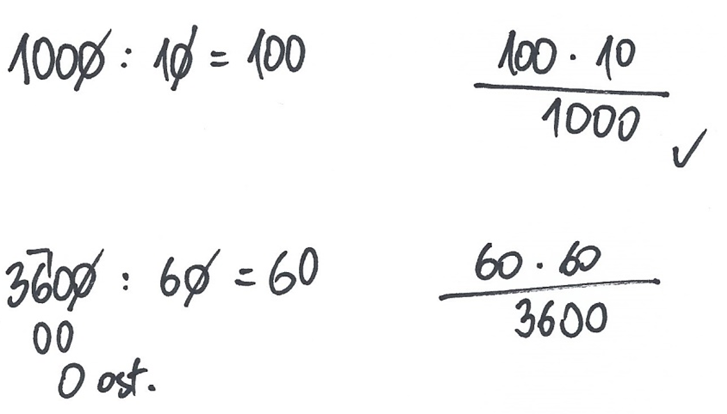 1000 : 10 = 100
100 · 10
1000
✓
3600 : 60 = 60
00
0 ost.
60 · 60
3600